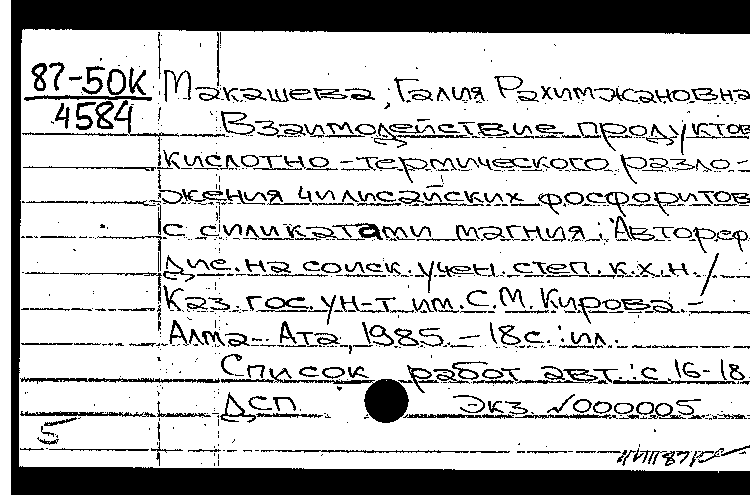 87-50К
4584
Макашева, Галия Рахимжановна
Взаимодействие продуктов
кислотно-термического разло-
жения чилисайских фосфоритов
с силикатами магния: Автореф.
дис. на соиск. учен. степ. к.х.н. /
Каз. гос. ун-т им. С.М. Кирова. -
Алма-Ата, 1985. - 18 с.: ил.
Список работ авт.: с. 16-18
ДСП Экз. №000005
5